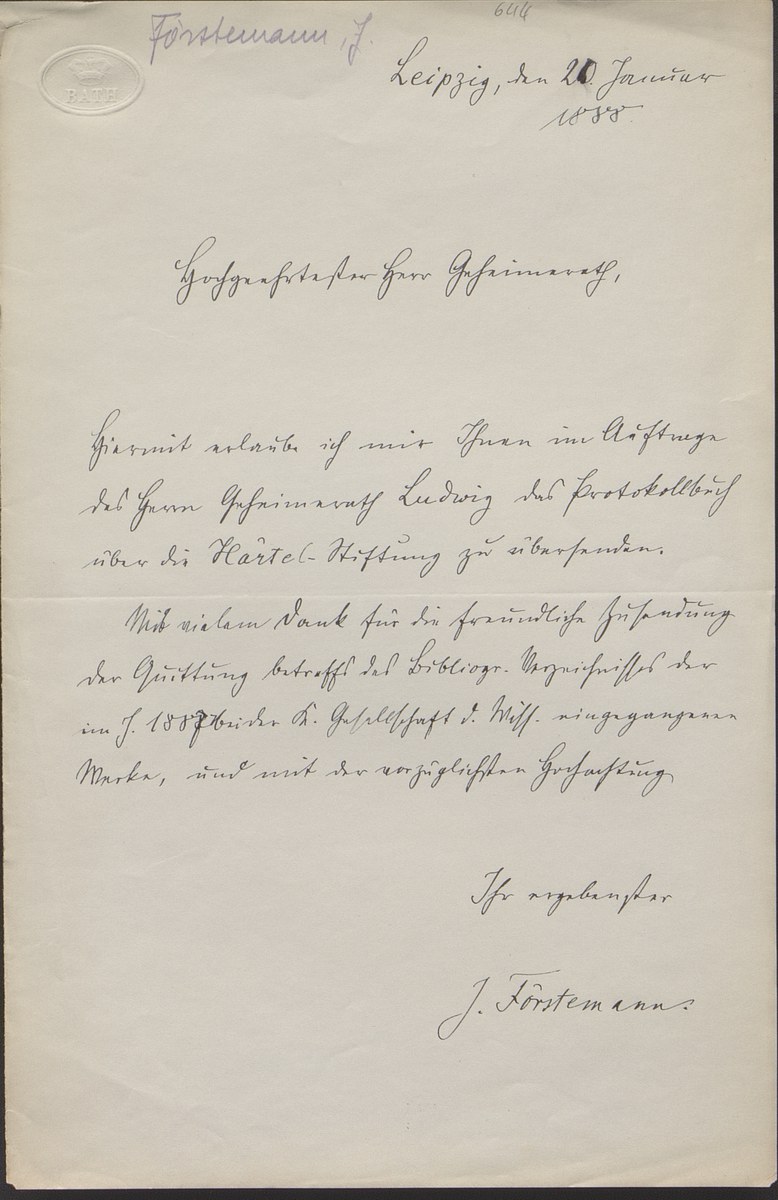 644
Förstemann, J.
BATH
Leipzig, den 20. Januar
1888.
Hochgeehrtester Herr Geheimerath,
Hiermit erlaube ich mir Ihnen im Auftrage
des Herrn Geheimerath Ludwig das Protokollbuch
über die Härtel-Stiftung zu übersenden.
Mit vielem Dank für die freundliche Zusendung
der Quittung betreffs des Bibliogr. Verzeichnisses der
im J. 1887 bei der K. Gesellschaft d. Wiss. eingegangenen
Werke, und mit der vorzüglichsten Hochachtung
Ihr ergebenster
J. Förstemann.